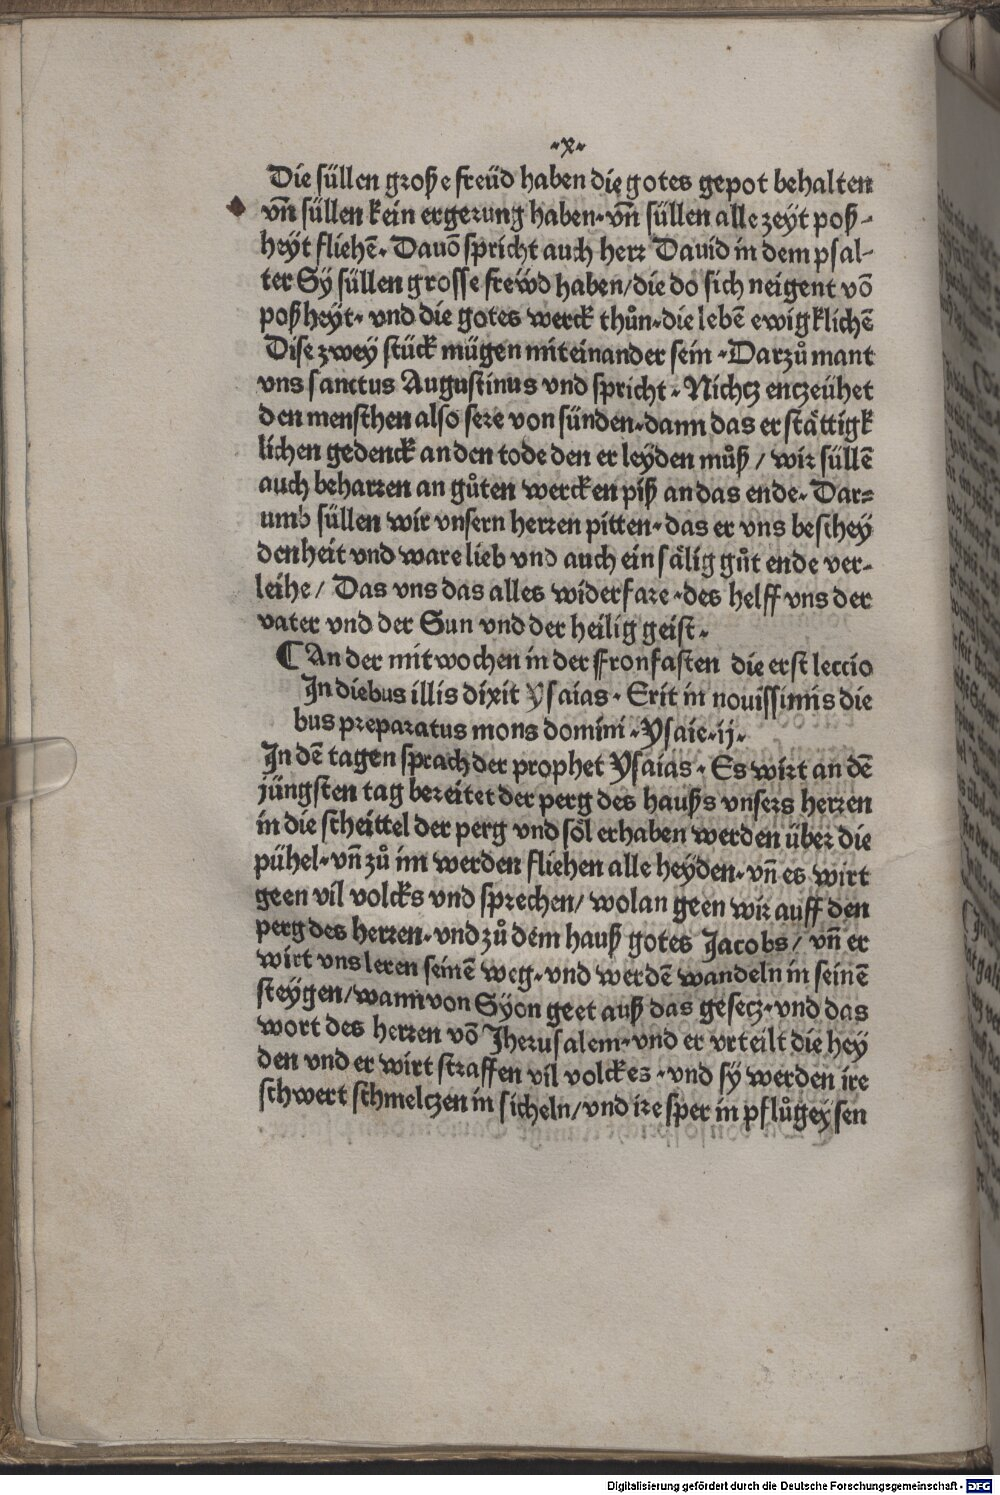 ·x·
Die süllen große freüd haben die gotes gepot behalten
vñ süllen kein ergerung haben·vñ süllen alle zeyt poß-
heyt fliehē·Dauō spricht auch herr Dauid in dem psal-
ter Sy süllen grosse frewd haben/die do sich neigent vō
poßheyt·vnd die gotes werck thůn·die lebē ewigklichē
Dise zwey stück mügen miteinander sein·Darzů mant
vns sanctus Augustinus vnd spricht·Nichtz entzeühet
den menschen also sere von sünden·dann das er stättigk
lichen gedenck an den tode den er leyden můß/wir süllē
auch beharren an gůten wercken piß an das ende·Dar=
umb süllen wir vnsern herren pitten·das er vns beschey
denheit vnd ware lieb vnd auch ein sälig gůt ende ver-
leihe/Das vns das alles widerfare·des helff vns der
vater vnd der Sun vnd der heilig geist·
¶ An der mitwochen in der ffronfasten die erst leccio
In diebus illis dixit Ysaias·Erit in nouissimis die
bus preparatus mons domini·Ysaie·ij·
In dē tagen sprach der prophet Ysaias·Es wirt an dē
jüngsten tag bereitet der perg des haußs vnsers herren
in die scheittel der perg vnd sol erhaben werden über die
pühel·vñ zů im werden fliehen alle heyden·vñ es wirt
geen vil volcks vnd sprechen/wolan geen wir auff den
perg des herren·vnd zů dem hauß gotes Jacobs/vñ er
wirt vns leren seinē weg·vnd werdē wandeln in seinē
steygen/wann von Syon geet auß das gesetz·vnd das
wort des herren vō Jherusalem·vnd er vrteilt die hey
den vnd er wirt straffen vil volckes·vnd sy werden ire
schwert schmeltzen in sicheln/vnd ire sper in pflůgeysen
Digitalisierung gefördert durch die Deutsche Forschungsgemeinschaft - DFG